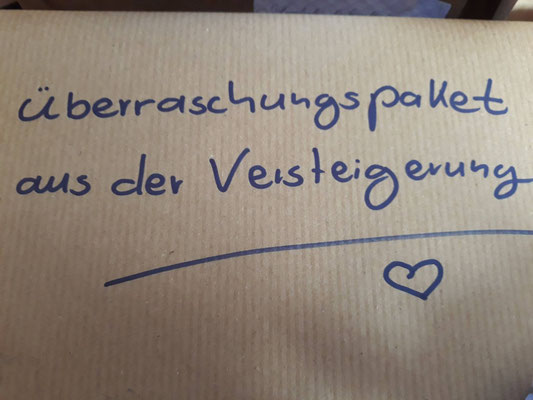 überraschungspaket
aus der Versteigerung